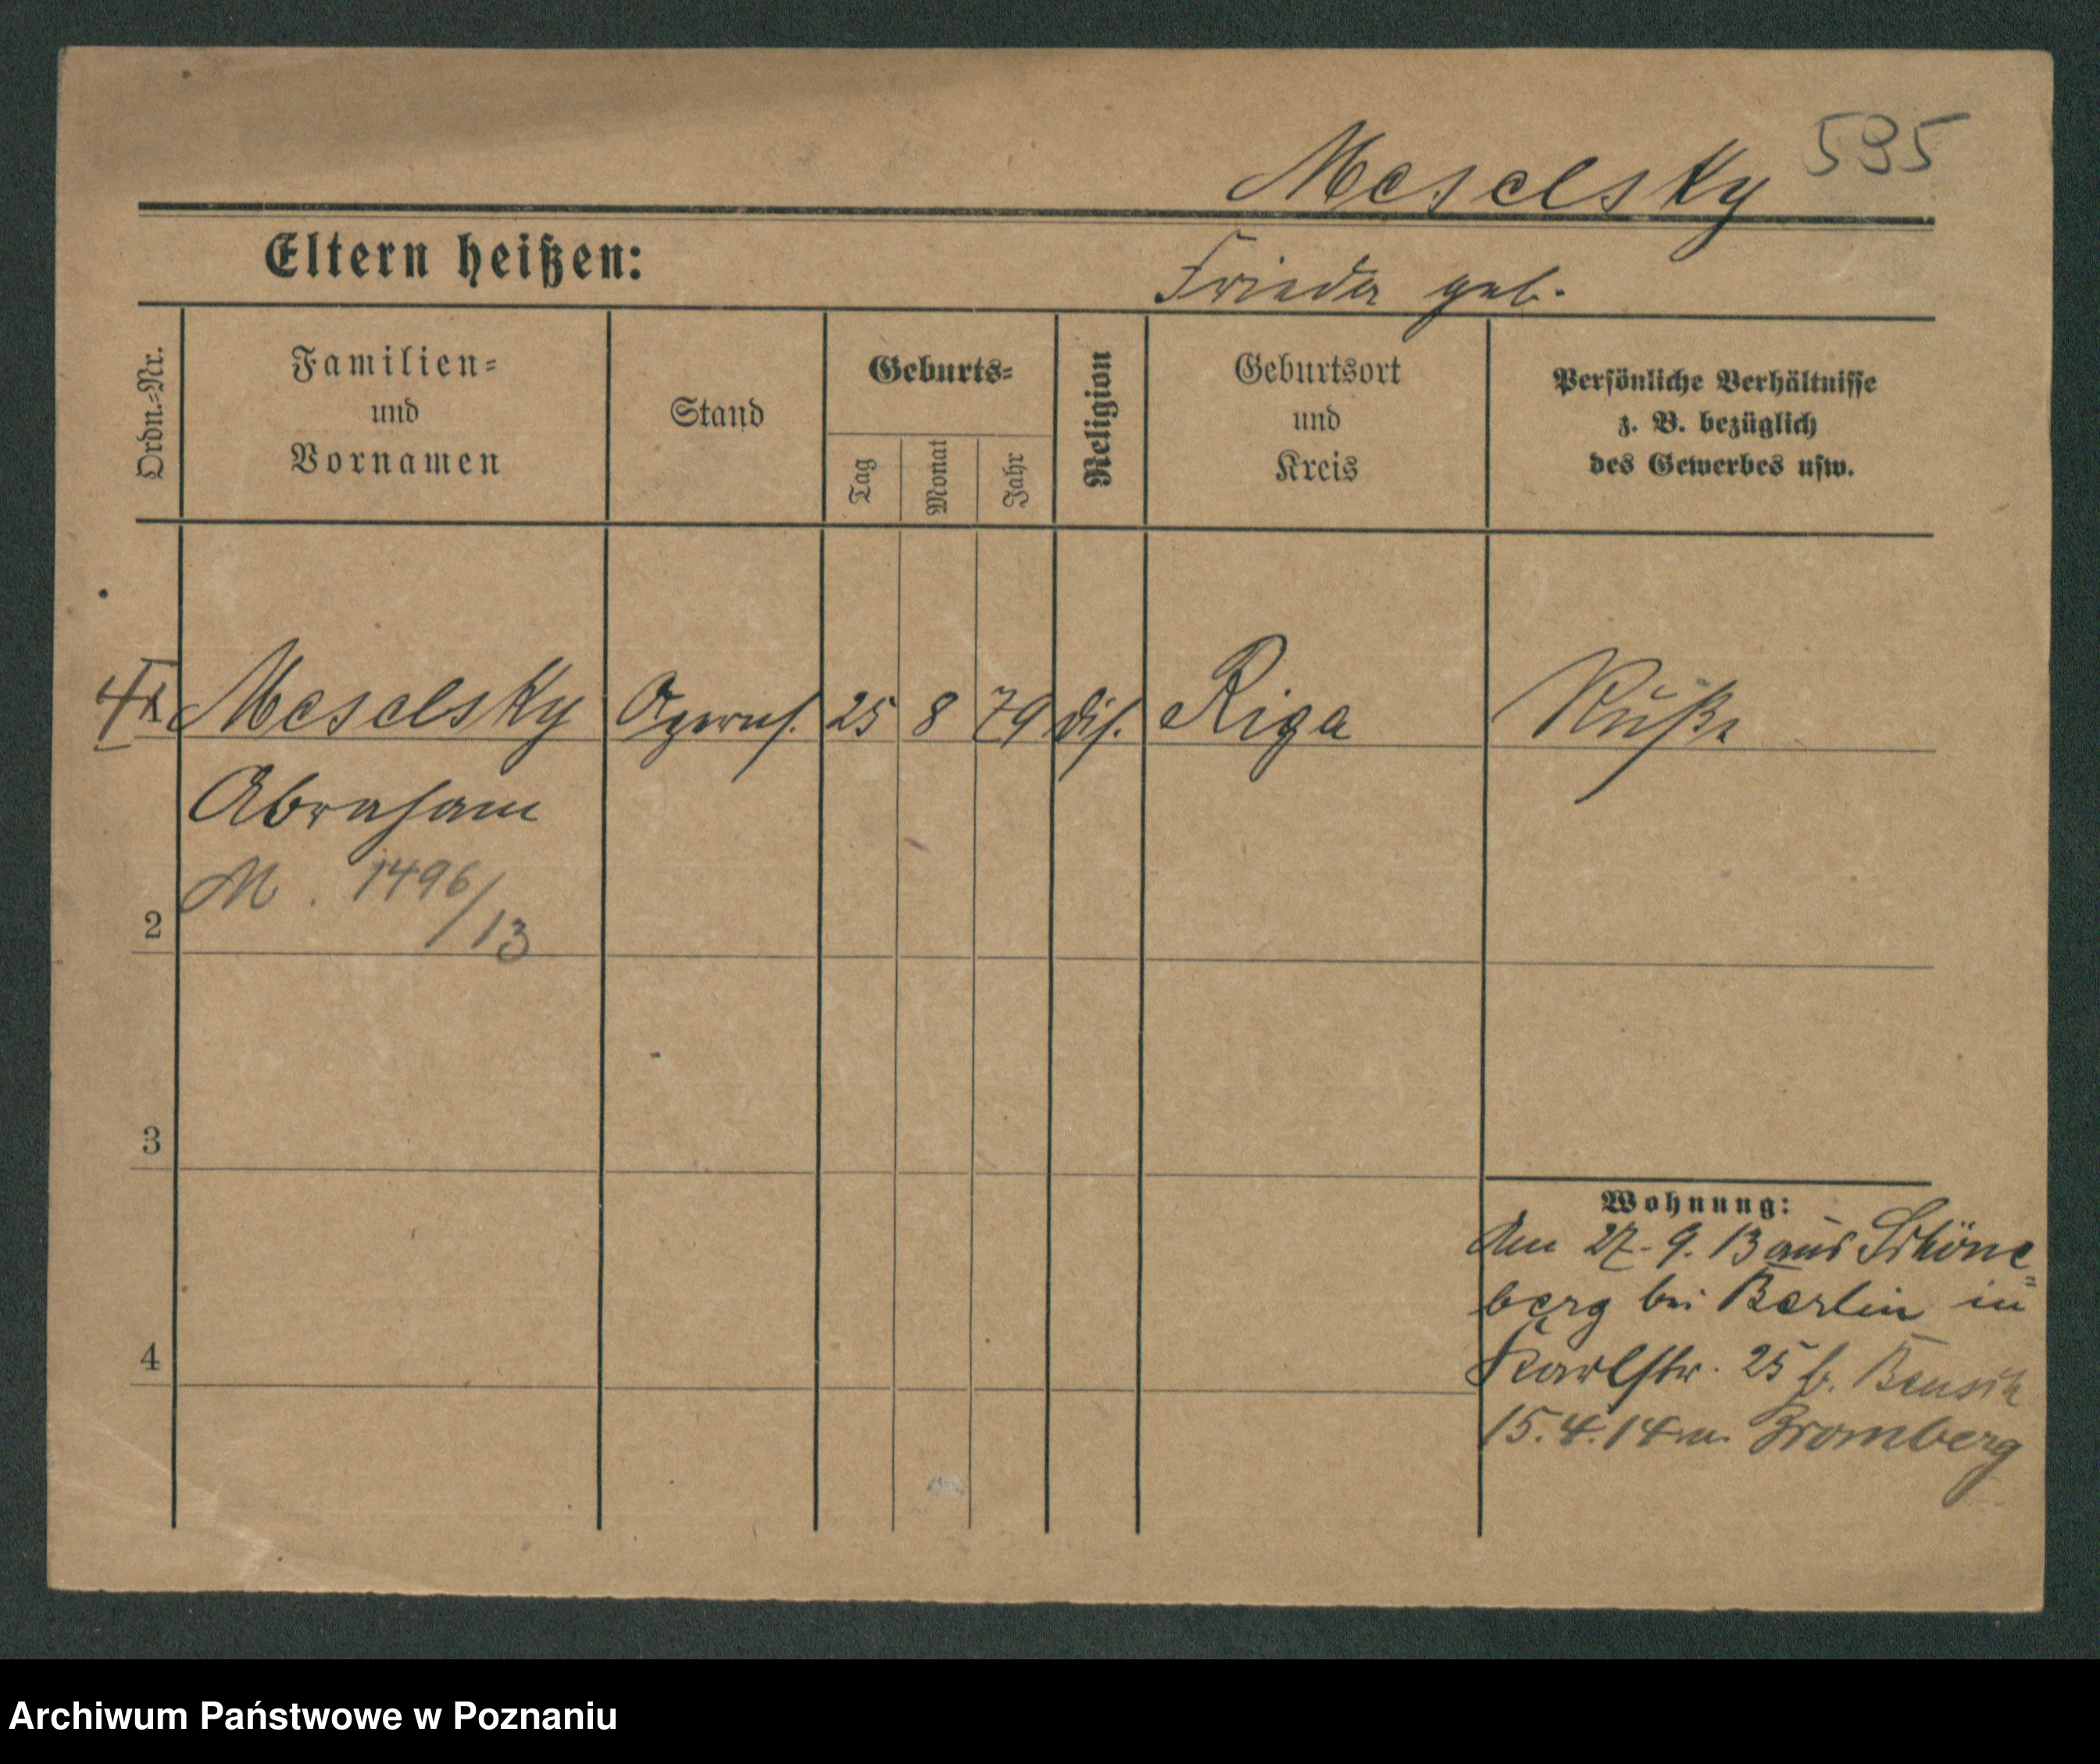 595
Meselsky
Eltern heißen:
Frieda geb.
Ordn.-Nr.
Familien-
und
Vornamen
Stand
Geburts-
Tag
Monat
Jahr
Religion
Geburtsort
und
Kreis
Persönliche Verhältnisse
z. B. bezüglich
des Gewerbes usw.
Meselsky 25 8 79 Riga Russe
Abraham
M. 1496/13
2
3
Wohnung:
Am 27.9.13 aus Schöne=
berg bei Berlin in
Karlstr. 25 b.
4
15.4.14 n. Bromberg
Archiwum Państwowe w Poznaniu